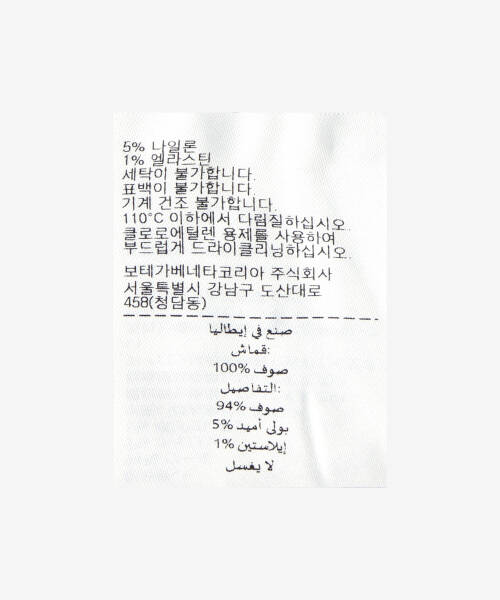 5% 나일론
1% 엘라스틴
세탁이 불가합니다.
표백이 불가합니다.
기계 건조 불가합니다.
110°C 이하에서 다림질하십시오.
클로로에틸렌 용제를 사용하여
부드럽게 드라이클리닝하십시오.
보테가베네타코리아 주식회사
서울특별시 강남구 도산대로
458(청담동)
صنع في إيطاليا
قماش:
صوف %100
التفاصيل:
صوف %94
بولى أميد %5
إيلاستين %1
لا يغسل